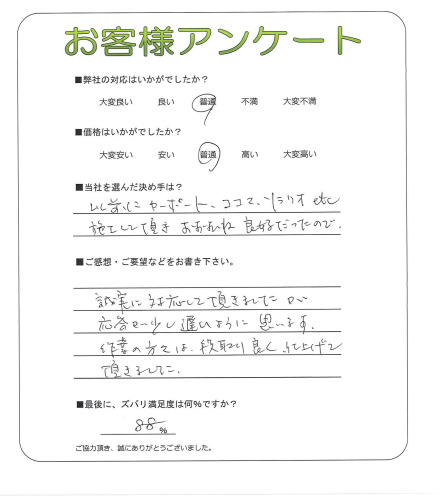 お客様アンケート
■弊社の対応はいかがでしたか?
大変良い 良い 普通 不満 大変不満
■価格はいかがでしたか?
大変安い 安い 普通 高い 大変高い
■当社を選んだ決め手は?
以前に カーポート、ココマ、ソラリオ etc
施工して頂き おおむね 良好だったので.
■ご感想・ご要望などをお書き下さい。
誠実に対応して頂きましたが
応答が少し遅いように思います.
作業の方々は、段取り良く仕上げて
頂きました.
■最後に、ズバリ満足度は何%ですか?
88%
ご協力頂き、誠にありがとうございました。